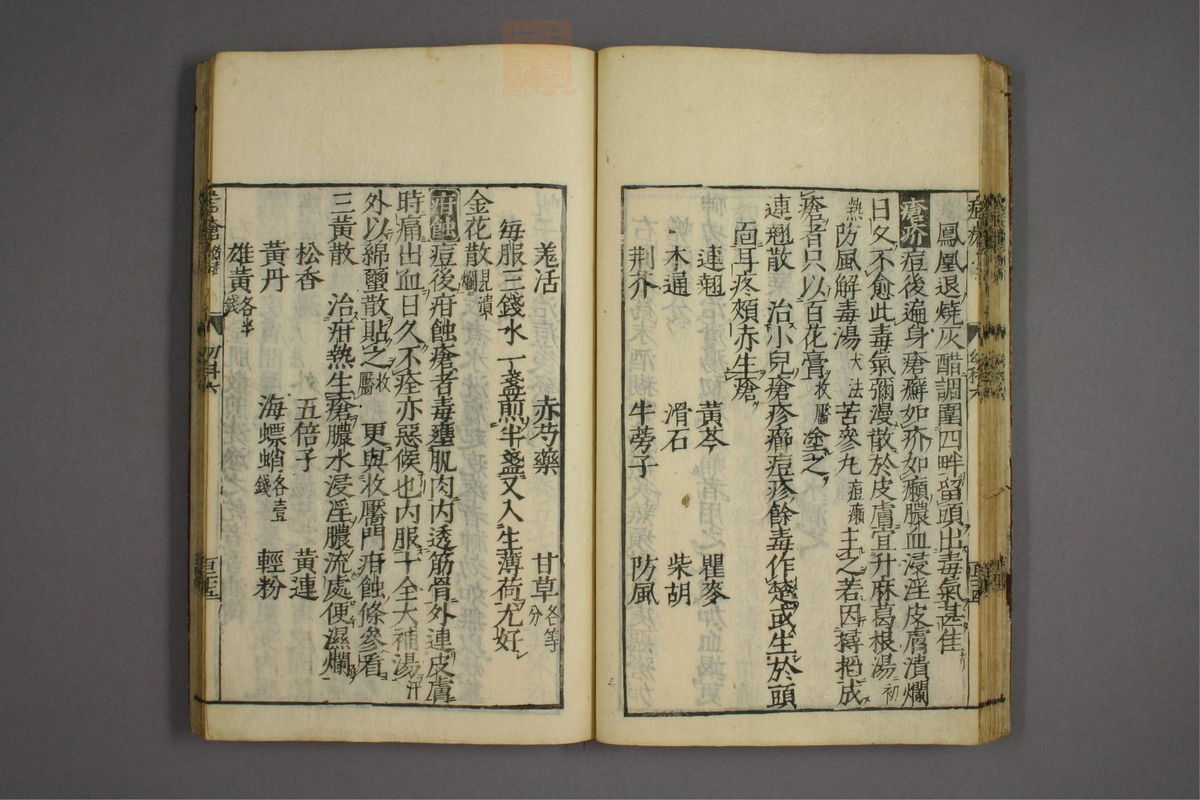 鳳凰退燒灰醋調圍四畔留頭出毒氣甚佳
瘡疥痘後遍身瘡癬如疥如癩膿血浸淫皮膚潰爛
日久不愈此毒氣彌漫散於皮膚宜升麻葛根湯初
熱防風解毒湯大法苦參丸痘癩主之若因搔把成
瘡者只以百花膏收靨塗之
連翹散 治小兒瘡疹癤痘疹餘毒作楚或生於頭
面耳疼頰赤生瘡
連翹 黃芩 瞿麥
木通 滑石 柴胡
荆芥 牛蒡子 防風
羌活 赤芍藥 甘草各等分
每服三錢水一盞煎半盞又入生薄荷尤好
金花散見潰爛
疳蝕痘後疳蝕瘡者毒壅肌肉內透筋骨外連皮膚
時痛出血日久不痊亦惡候也內服十全大補湯汗
外以綿蠒散貼之收靨更與收靨門疳蝕條參看
三黃散 治疳熱生瘡膿水浸淫膿流處便濕爛
松香 五倍子 黃連
黃丹 海螵蛸各壹錢 輕粉
雄黃各半錢